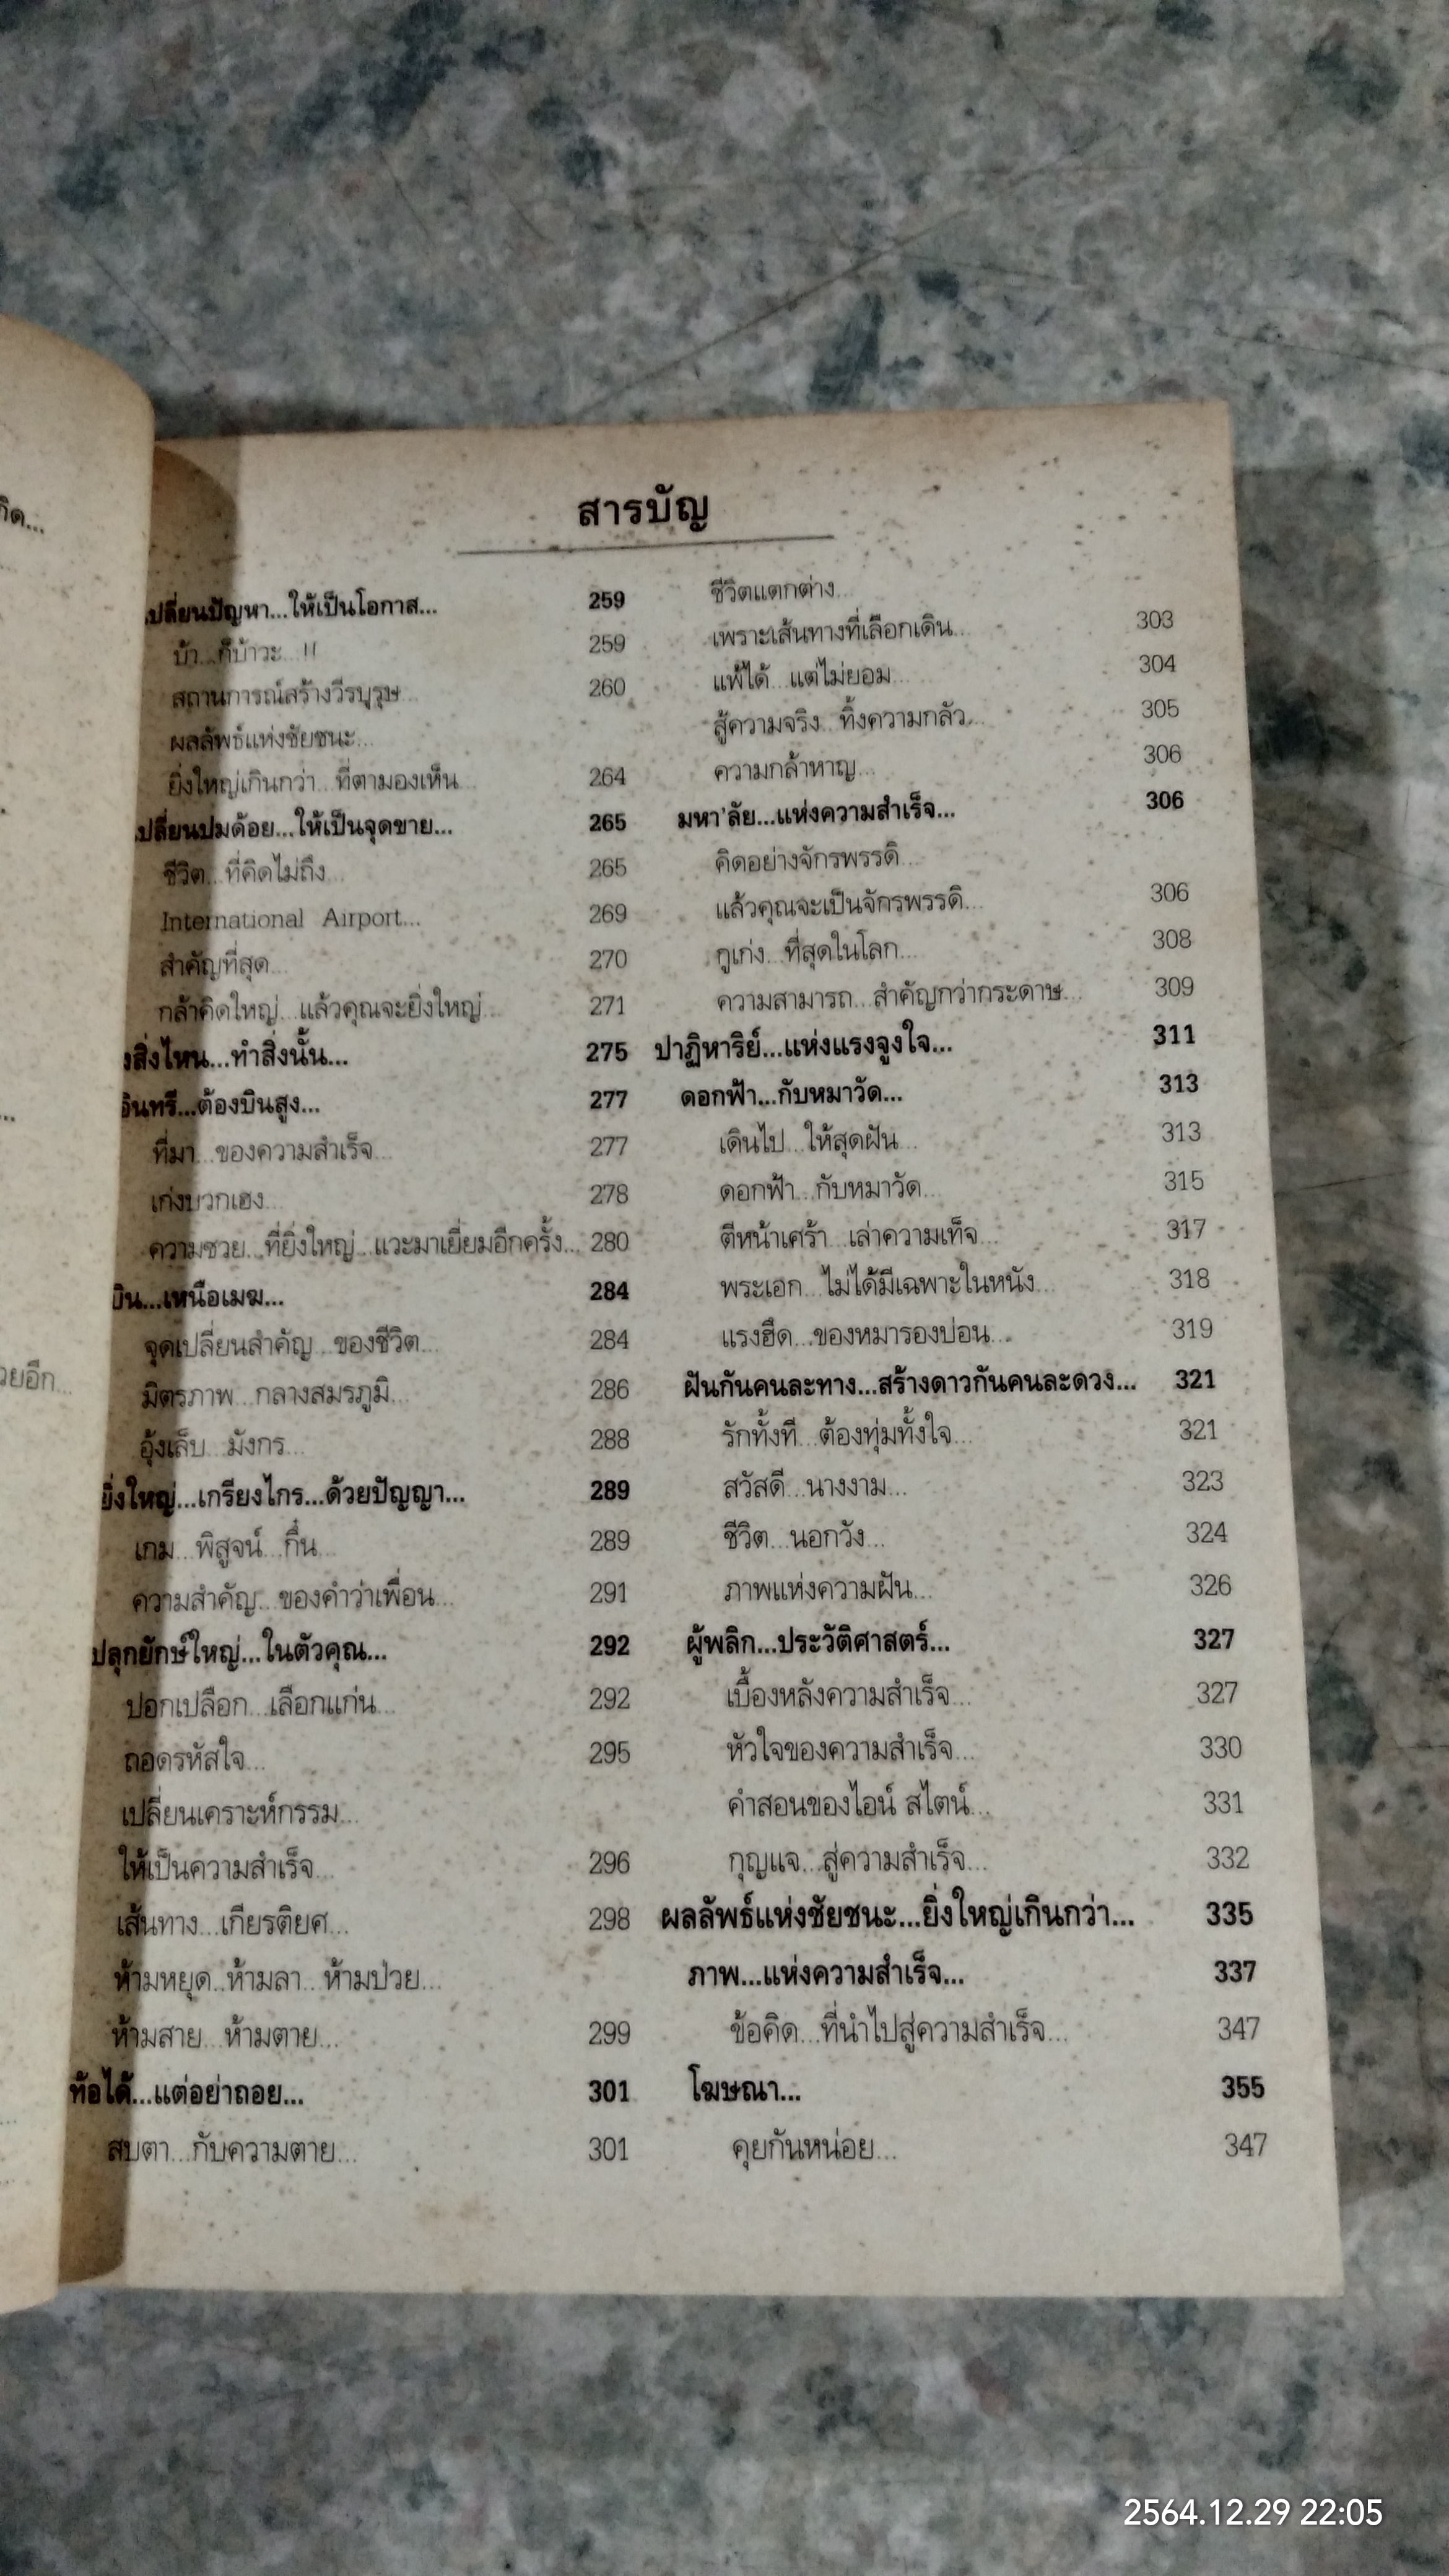 สารบัญ
เปลี่ยนปัญหา...ให้เป็นโอกาส... 259
บ้า...ก็บ้าวะ...!! 259
สถานการณ์สร้างวีรบุรุษ... 260
ผลลัพธ์แห่งชัยชนะ...
ยิ่งใหญ่เกินกว่า...ที่ตามองเห็น 264
เปลี่ยนปมด้อย...ให้เป็นจุดขาย... 265
ชีวิต...ที่คิดไม่ถึง... 265
International Airport... 269
สำคัญที่สุด... 270
กล้าคิดใหญ่...แล้วคุณจะยิ่งใหญ่... 271
สิ่งไหน...ทำสิ่งนั้น... 275
อินทรี...ต้องบินสูง... 277
ที่มา...ของความสำเร็จ... 277
เก่งบวกเฮง... 278
ความซวย...ที่ยิ่งใหญ่...แวะมาเยี่ยมอีกครั้ง... 280
บิน...เหนือเมฆ... 284
จุดเปลี่ยนสำคัญ...ของชีวิต... 284
มิตรภาพ...กลางสมรภูมิ... 286
อุ้งเล็บ...มังกร... 288
ยิ่งใหญ่...เกรียงไกร...ด้วยปัญญา... 289
เกม...พิสูจน์...กึ๋น... 289
ความสำคัญ...ของคำว่าเพื่อน... 291
ปลุกยักษ์ใหญ่...ในตัวคุณ... 292
ปอกเปลือก...เลือกแก่น... 292
ถอดรหัสใจ... 295
เปลี่ยนเคราะห์กรรม...
ให้เป็นความสำเร็จ... 296
เส้นทาง...เกียรติยศ... 298
ห้ามหยุด..ห้ามลา...ห้ามป่วย...
ห้ามสาย...ห้ามตาย... 299
ท้อได้...แต่อย่าถอย... 301
สบตา...กับความตาย... 301
ชีวิตแตกต่าง...
เพราะเส้นทางที่เลือกเดิน... 303
แพ้ได้...แต่ไม่ยอม... 304
สู้ความจริง...ทิ้งความกลัว... 305
ความกล้าหาญ... 306
มหา'ลัย...แห่งความสำเร็จ... 306
คิดอย่างจักรพรรดิ...
แล้วคุณจะเป็นจักรพรรดิ... 306
กูเก่ง...ที่สุดในโลก... 308
ความสามารถ...สำคัญกว่ากระดาษ... 309
ปาฏิหาริย์...แห่งแรงจูงใจ... 311
ดอกฟ้า...กับหมาวัด... 313
เดินไป...ให้สุดฝัน... 313
ดอกฟ้า...กับหมาวัด... 315
ตีหน้าเศร้า...เล่าความเท็จ... 317
พระเอก...ไม่ได้มีเฉพาะในหนัง... 318
แรงฮึด...ของหมารองบ่อน... 319
ฝันกันคนละทาง...สร้างดาวกันคนละดวง... 321
รักทั้งที...ต้องทุ่มทั้งใจ... 321
สวัสดี...นางงาม... 323
ชีวิต...นอกวัง... 324
ภาพแห่งความฝัน... 326
ผู้พลิก...ประวัติศาสตร์... 327
เบื้องหลังความสำเร็จ... 327
หัวใจของความสำเร็จ... 330
คำสอนของไอน์ สไตน์... 331
กุญแจ...สู่ความสำเร็จ... 332
ผลลัพธ์แห่งชัยชนะ...ยิ่งใหญ่เกินกว่า... 335
ภาพ...แห่งความสำเร็จ... 337
ข้อคิด...ที่นำไปสู่ความสำเร็จ... 347
โฆษณา... 355
คุยกันหน่อย... 347
2564.12.29 22:05